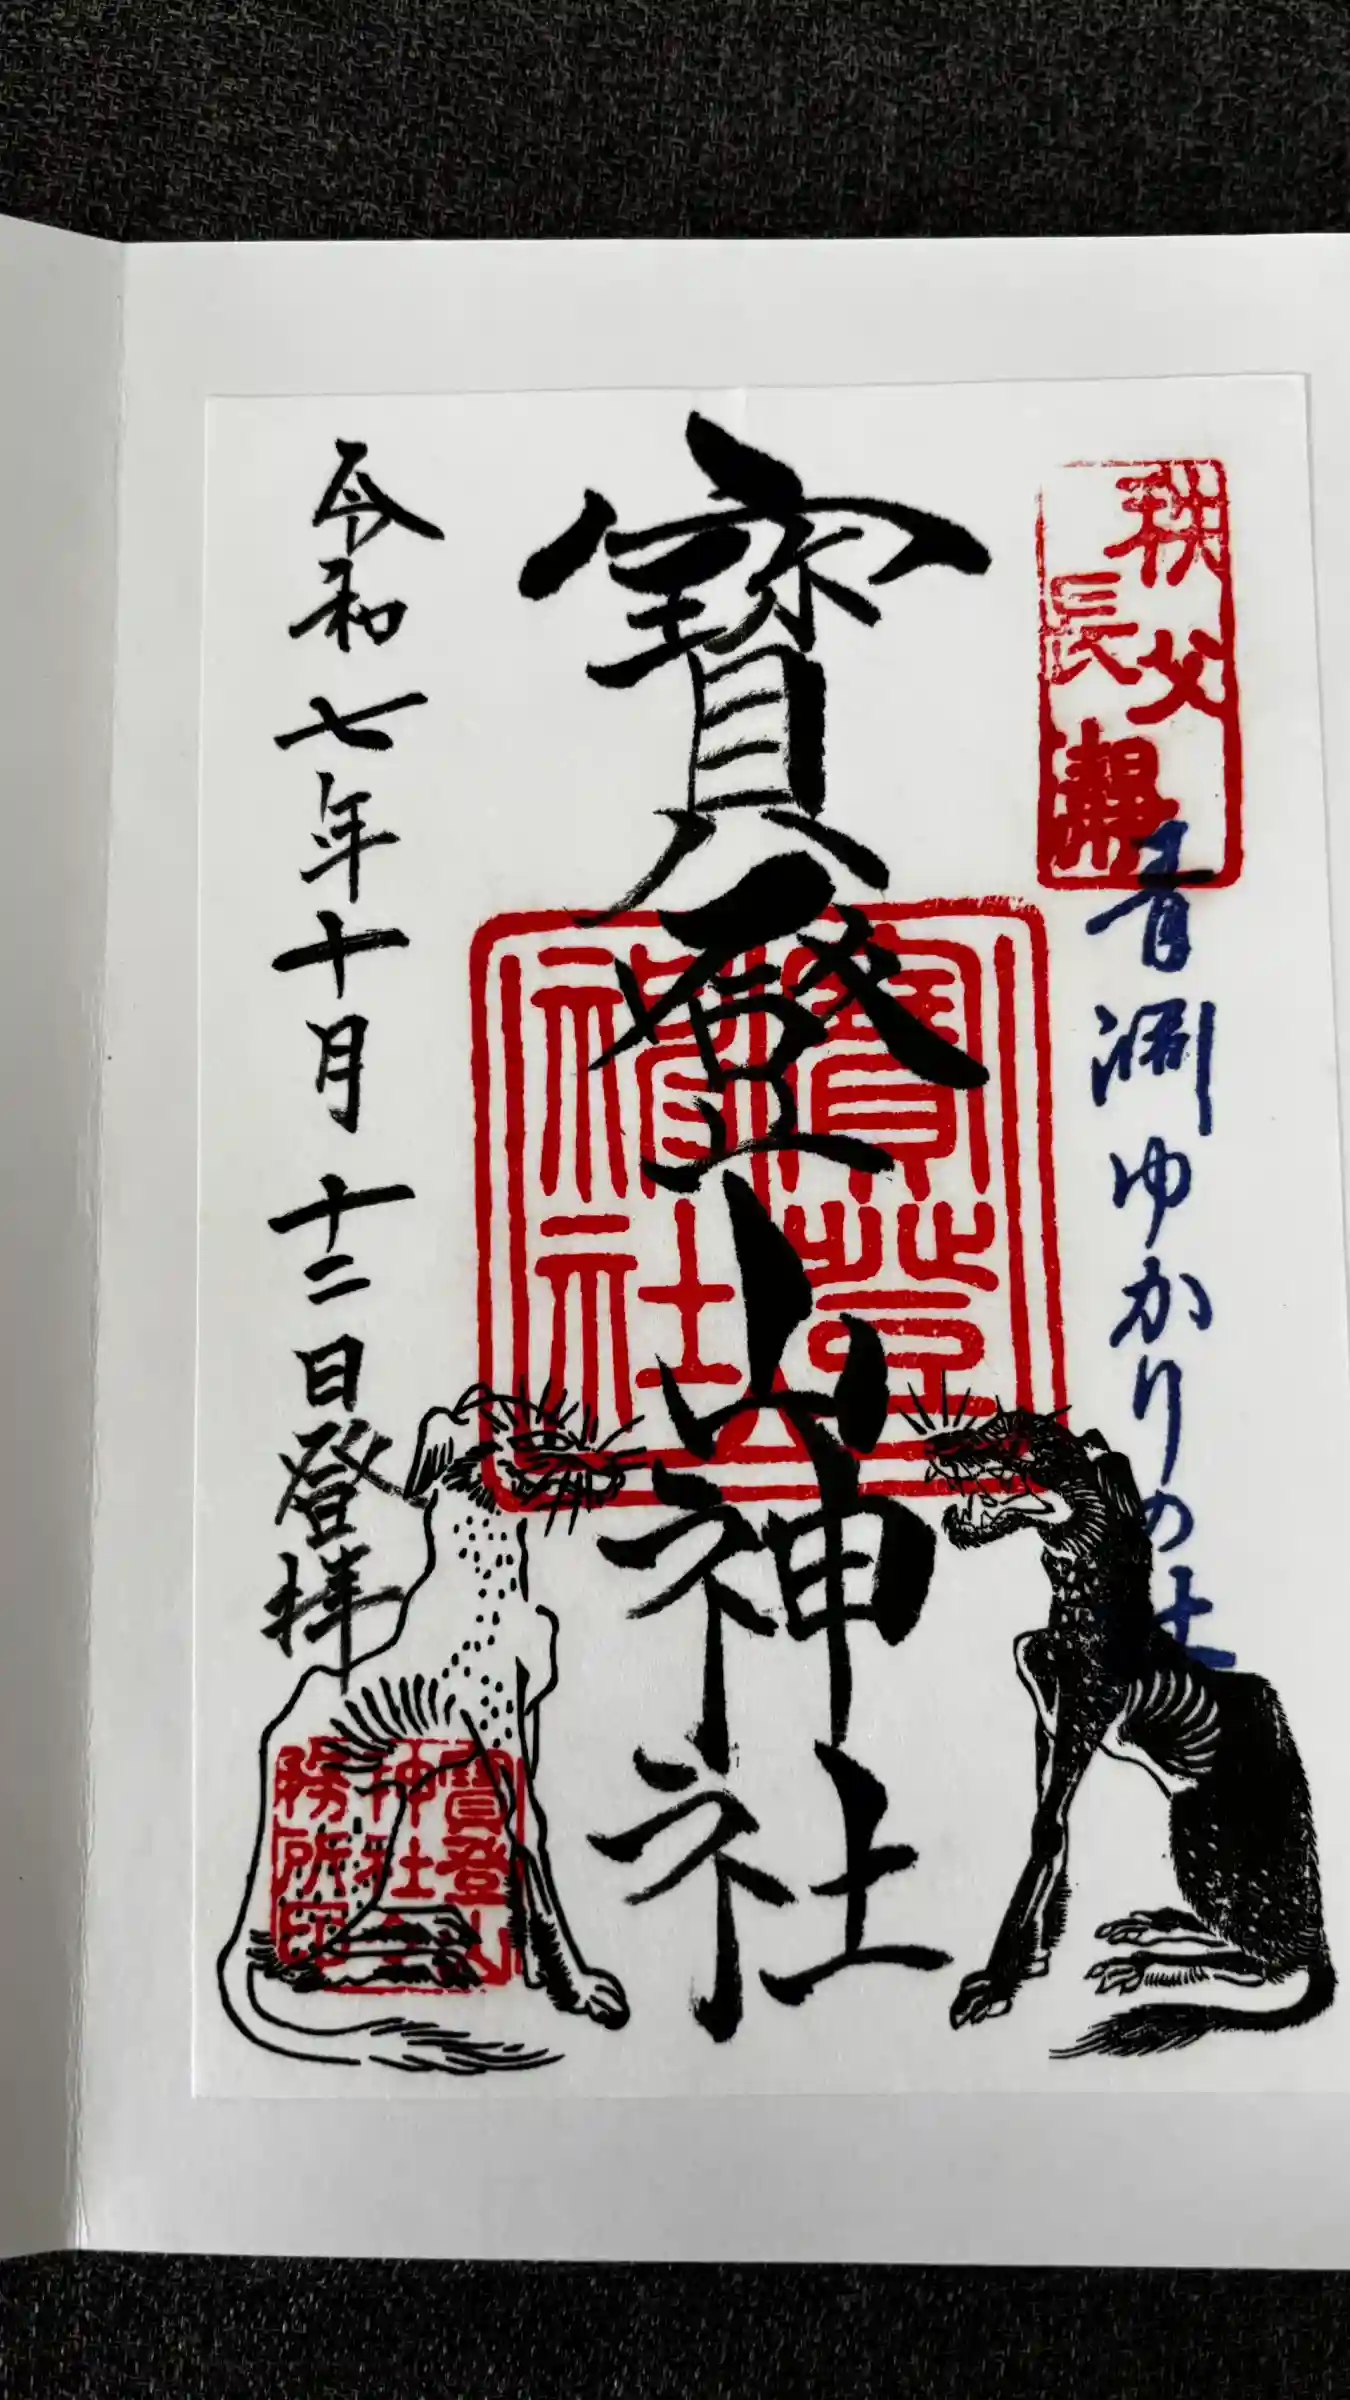 秩父
長瀞
青淵ゆかりの社
寶登山神社
寶登
神社
令和七年十月十二日登拝
寶登山
神社
務所印